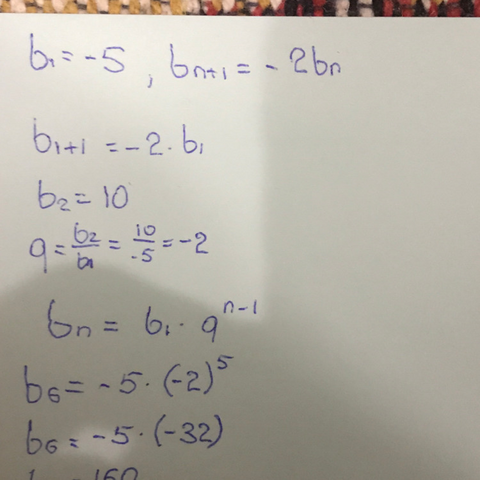 b₁ = -5 , bₙ₊₁ = - 2bₙ
b₁₊₁ = -2 · b₁
b₂ = 10
q = b₂/b₁ = 10/-5 = -2
bₙ = b₁ · qⁿ⁻¹
b₆ = -5 · (-2)⁵
b₆ = -5 · (-32)